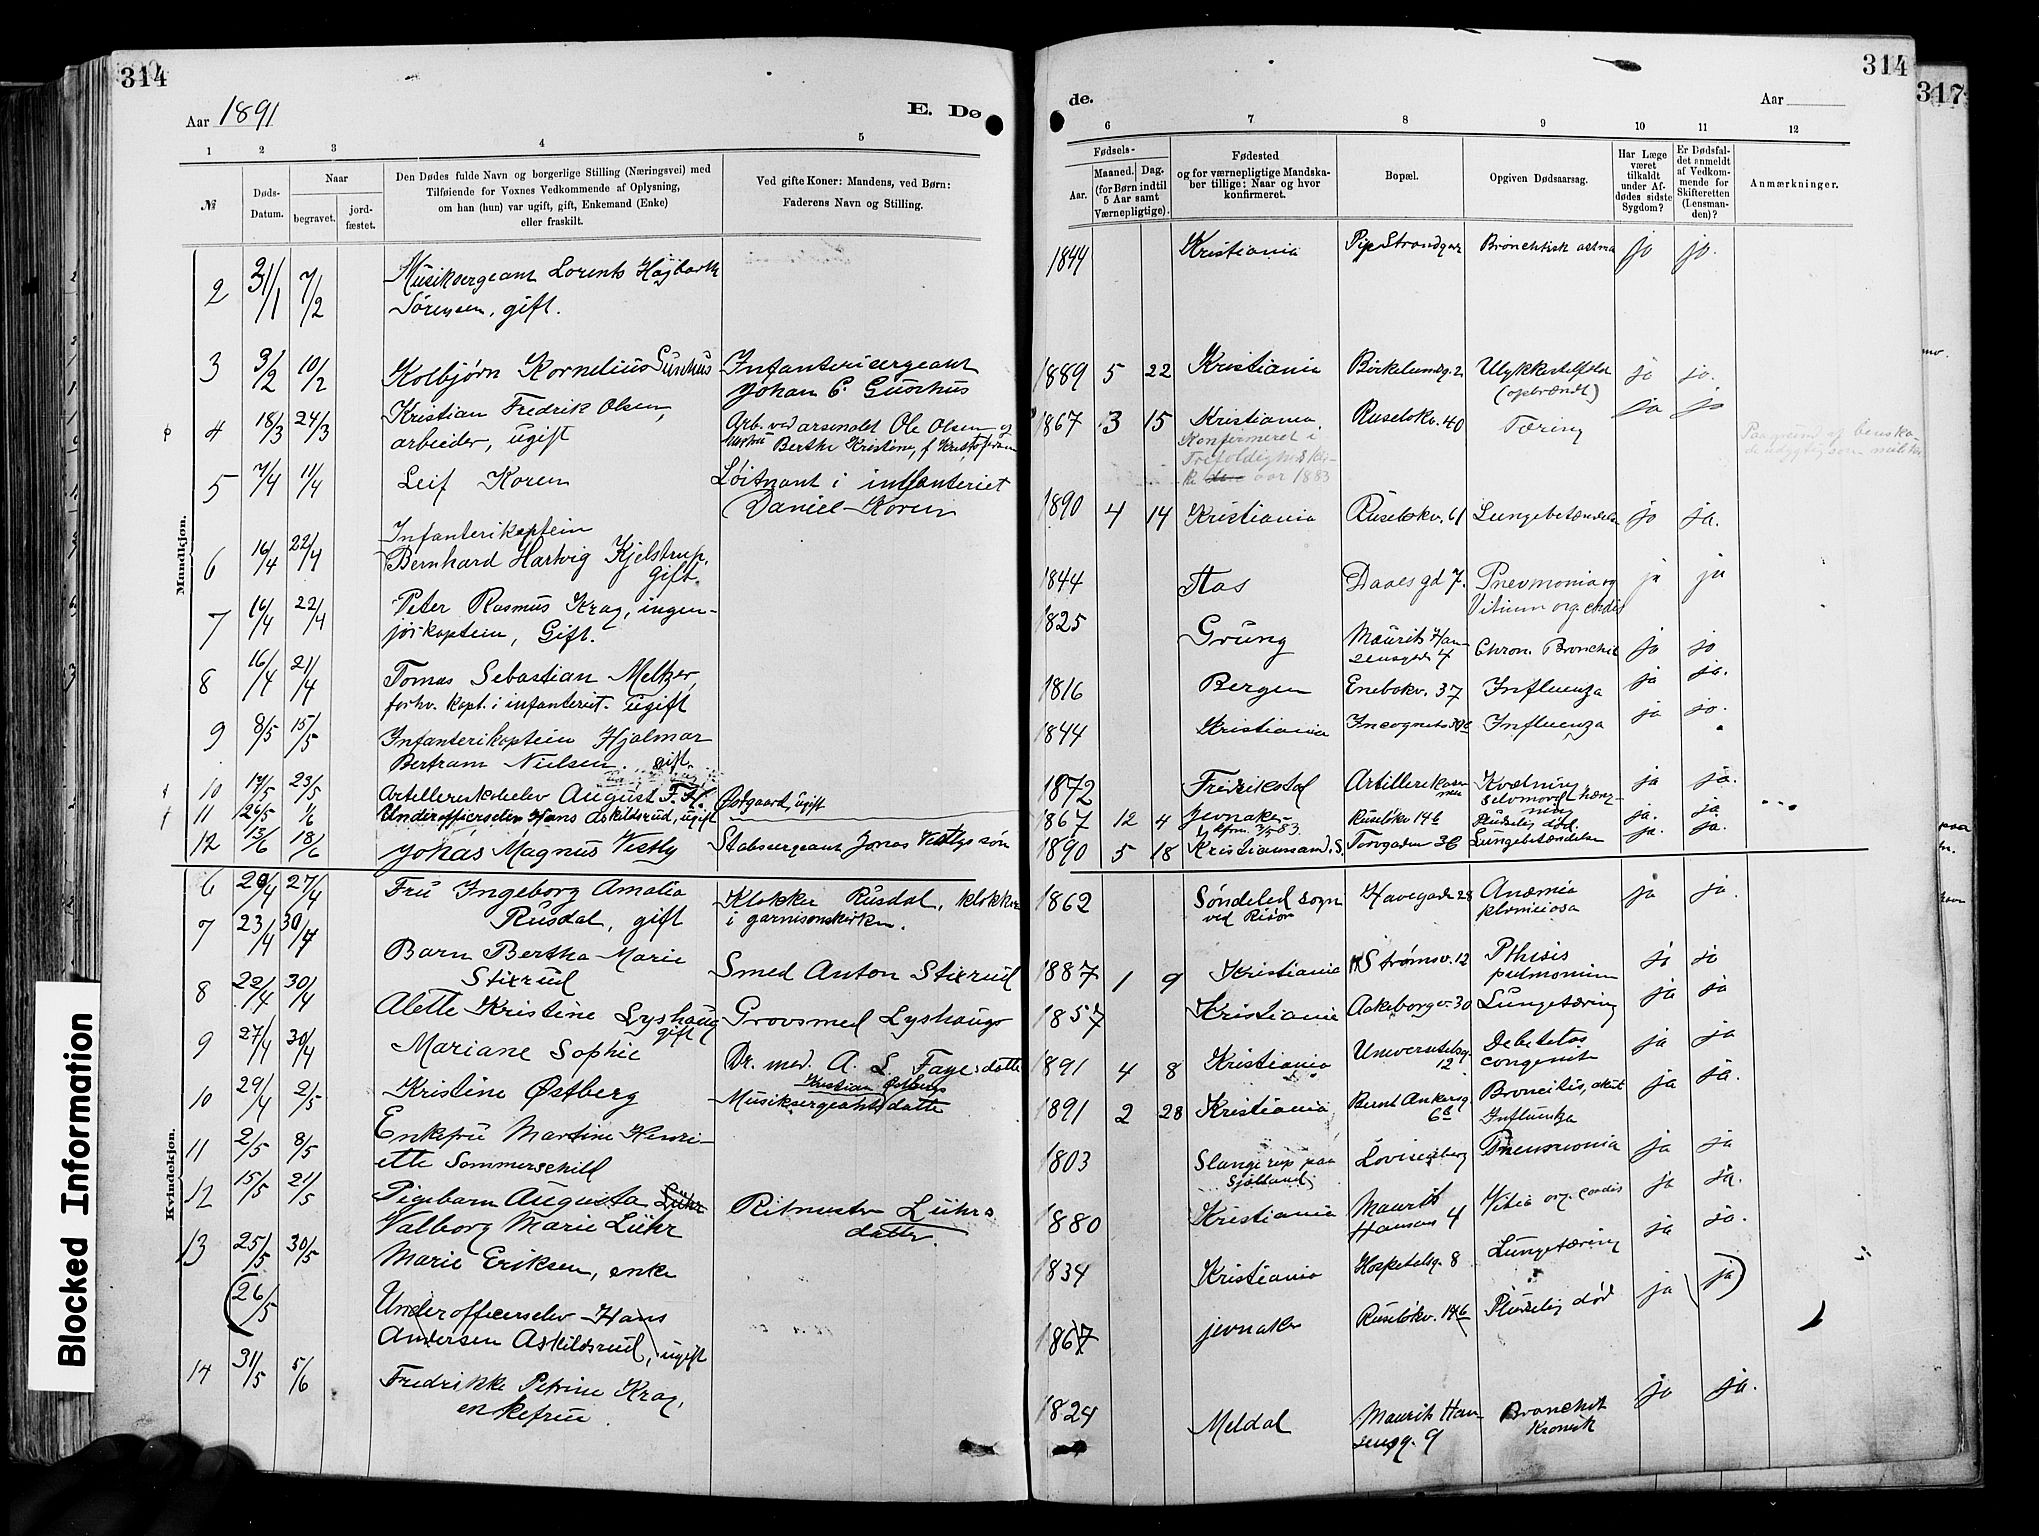 314
Aar 1891
E. Dø
1 2 3 4 5
№
Døds-Datum.
Naar
begravet.
jord-fæstet.
Den Dødes fulde Navn og borgerlige Stilling (Næringsvei) med
Tilføiende for Voxnes Vedkommende af Oplysning,
om han (hun) var ugift, gift, Enkemand (Enke)
eller fraskilt.
Ved gifte Koner: Mandens, ved Børn:
Faderens Navn og Stilling.
Mandkjøn.
2 31/1 7/2 Musiksergeant Lorents Højbarth
Sørensen, gift.
3 3/2 10/2 Kolbjørn Kornelius Guslhus Infanterisergeant
Johan C. Guslhus
4 18/3 24/3 Kristian Fredrik Olsen, Arb. ved arsenalet Ole Olsen og
arbeider, ugift hustru Berthe Kristine, f.
5 7/4 11/4 Leif Koren Løitnant i infanteriet
Daniel Koren
Infanterikaptein
6 16/4 22/4 Bernhard Hartvig Kjelstrup,
gift.
7 16/4 22/4 Peter Rasmus Krag, ingen-
jørkaptein, Gift.
8 16/4 21/4 Tomas Sebastian Meltzer,
forhv. kapt. i infanteriet. ugift
9 8/5 15/5 Infanterikaptein Hjalmar
Bertram Nielsen. gift.
10 17/5 23/5 Artilleriskoleelev August F. H. Ødgaard, ugift
11 26/5 1/6 Underofficerselev Hans Askildsrud, ugift
12 13/6 18/6 Johas Magnus Vestby Stabssergeant Jonas Vestbys søn
Kvindekjøn.
6 20/4 27/4 Fru Ingeborg Amalia Klokker Rusdal, klokker
Rusdal, gift i garnisonskirken.
7 23/4 30/4 Barn Bertha Marie
Stixrud Smed Anton Stixrud
8 22/4 30/4 Alette Kristine Lyshaug Grovsmed Lyshaugs
gift
9 27/4 30/4 Mariane Sophie Dr. med. A. L. Fayes datte
10 29/4 2/5 Kristine Østberg Kristian Østbergs
Musiksergeant datte
11 2/5 8/5 Enkefru Martine Henri-
ette Sommerschild
12 15/5 21/5 Pigebarn Augusta Lühr Ritmester Lührs
Valborg Marie Lühr datter.
13 25/5 30/5 Marie Eriksen, enke
(26/5 Underofficerselev Hans
Andersen Askildsrud, ugift
14 31/5 5/6 Fredrikke Petrine Krag,
enkefrue.
314
317
de.
Aar
6 7 8 9 10 11 12
Fødsels-
Aar.
Maaned. Dag.
(for Børn indtil
5 Aar samt
Værnepligtige).
Fødested
og for værnepligtige Mandska-
ber tillige: Naar og hvor
konfirmeret.
Bopæl.
Opgiven Dødsaarsag.
Har Læge
været
tilkaldt
under Af-
dødes sidste
Sygdom?
Er Dødsfal-
det anmeldt
af Vedkom-
mende for
Skifteretten
(Lensman-
den)?
Anmærkninger.
1844 Kristiania Pipe Strandgad Bronchtisk astma ja ja.
1889 5 22 Kristiania Birkelundg. 2 Ulykkestilfelde ja ja.
(opbrændt)
1867 3 15 Kristiania. Ruseløkv. 40 Tæring ja ja
Konfirmeret i
Trefoldigheds kir-
ke aar 1883
1890 4 14 Kristiania Ruseløkv. 61 Lungebetændelse ja ja.
1844 Aas Daaes gd 7. Pnevmonia og ja ja
Vitium org. cordis
1825 Grung Maurits Han
sensgade 4 Chron. Bronchit ja ja
1816 Bergen Enebokv. 37 Influenza ja ja.
1844 Kristiania Incognitog 30b Influenza ja ja.
1872 Fredriksstad Artillerikaser
nen Kvælning ja ja.
selvmord hæng-
ning
1867 12 4 Jevnaker Ruseløkv 14b Pludselig død. ja. ja
kfm. 83.
1890 5 18 Kristianssand. S. Torvgaden 36 Lungebetændelse ja. ja.
1862 Søndeled sogn Havegade 28 Anæmia ja ja.
ved Risør
1887 1 9 Kristiania Strømsv. 12 Pthisis ja ja
pulmonum
1857 Kristiania Aakebergv. 30 Lungetæring ja ja
1891 4 8 Kristiania Universitetsg. Debetetas ja ja
12 congenit
1891 2 28 Kristiania Bernt Ankersg. Broncitis, akut ja ja.
6b Influenza
1803 Slangerup paa Lovisenberg Pneumonia ja ja
Sjælland
1880 Kristiania Maurits Vitia org. cordis ja ja.
Hansens 4
1834 Kristiania Hospitalsg. 8 Lungetæring ja ja.
1867 Jevnaker Ruseløkv. 14b Pludselig død ja (ja)
1824 Meldal Maurits Han Bronchit ja ja.
sensg. 9 Kronisk
Blocked Information